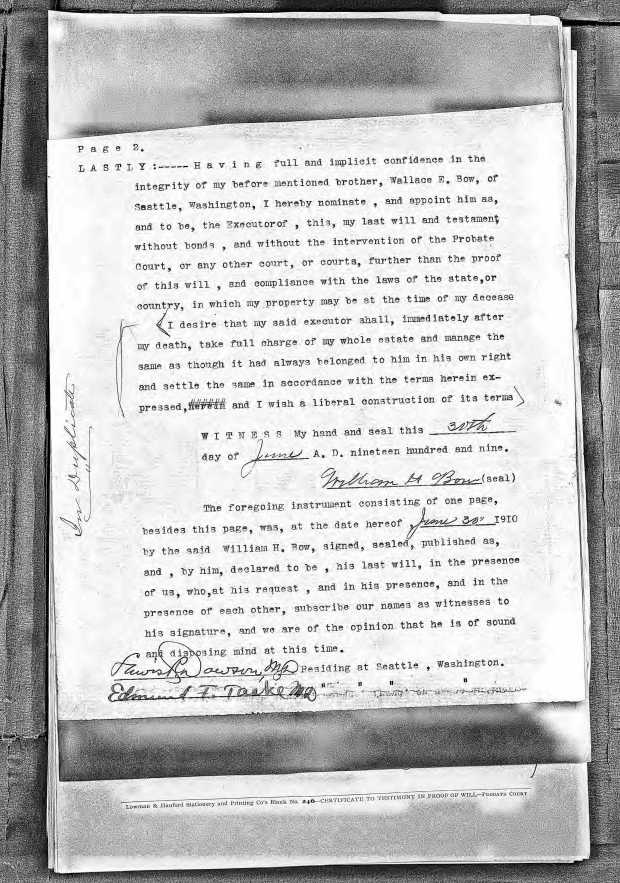 Page 2.
LASTLY:-----Having full and implicit confidence in the
integrity of my before mentioned brother, Wallace E. Bow, of
Seattle, Washington, I hereby nominate , and appoint him as,
and to be, the Executorof , this, my last will and testament
without bonds , and without the intervention of the Probate
Court, or any other court, or courts, further than the proof
of this will , and compliance with the laws of the state,or
country, in which my property may be at the time of my decease
(I desire that my said executor shall, immediately after
my death, take full charge of my whole estate and manage the
same as though it had always belonged to him in his own right
and settle the same in accordance with the terms herein ex-
pressed,herein and I wish a liberal construction of its terms)
In Duplicate
WITNESS My hand and seal this 30th
day of June A. D. nineteen hundred and nine.
William H Bow (seal)
The foregoing instrument consisting of one page,
besides this page, was, at the date hereof June 30" 1910
by the said William H. Bow, signed, sealed, published as,
and , by him, declared to be , his last will, in the presence
of us, who,at his request , and in his presence, and in the
presence of each other, subscribe our names as witnesses to
his signature, and we are of the opinion that he is of sound
and disposing mind at this time.
Lewis R. Dawson, MD Residing at Seattle , Washington.
Edmund F. MD " " " "
Lowman & Hanford Stationery and Printing Co's Blank No. 246—CERTIFICATE TO TESTIMONY IN PROOF OF WILL—PROBATE COURT